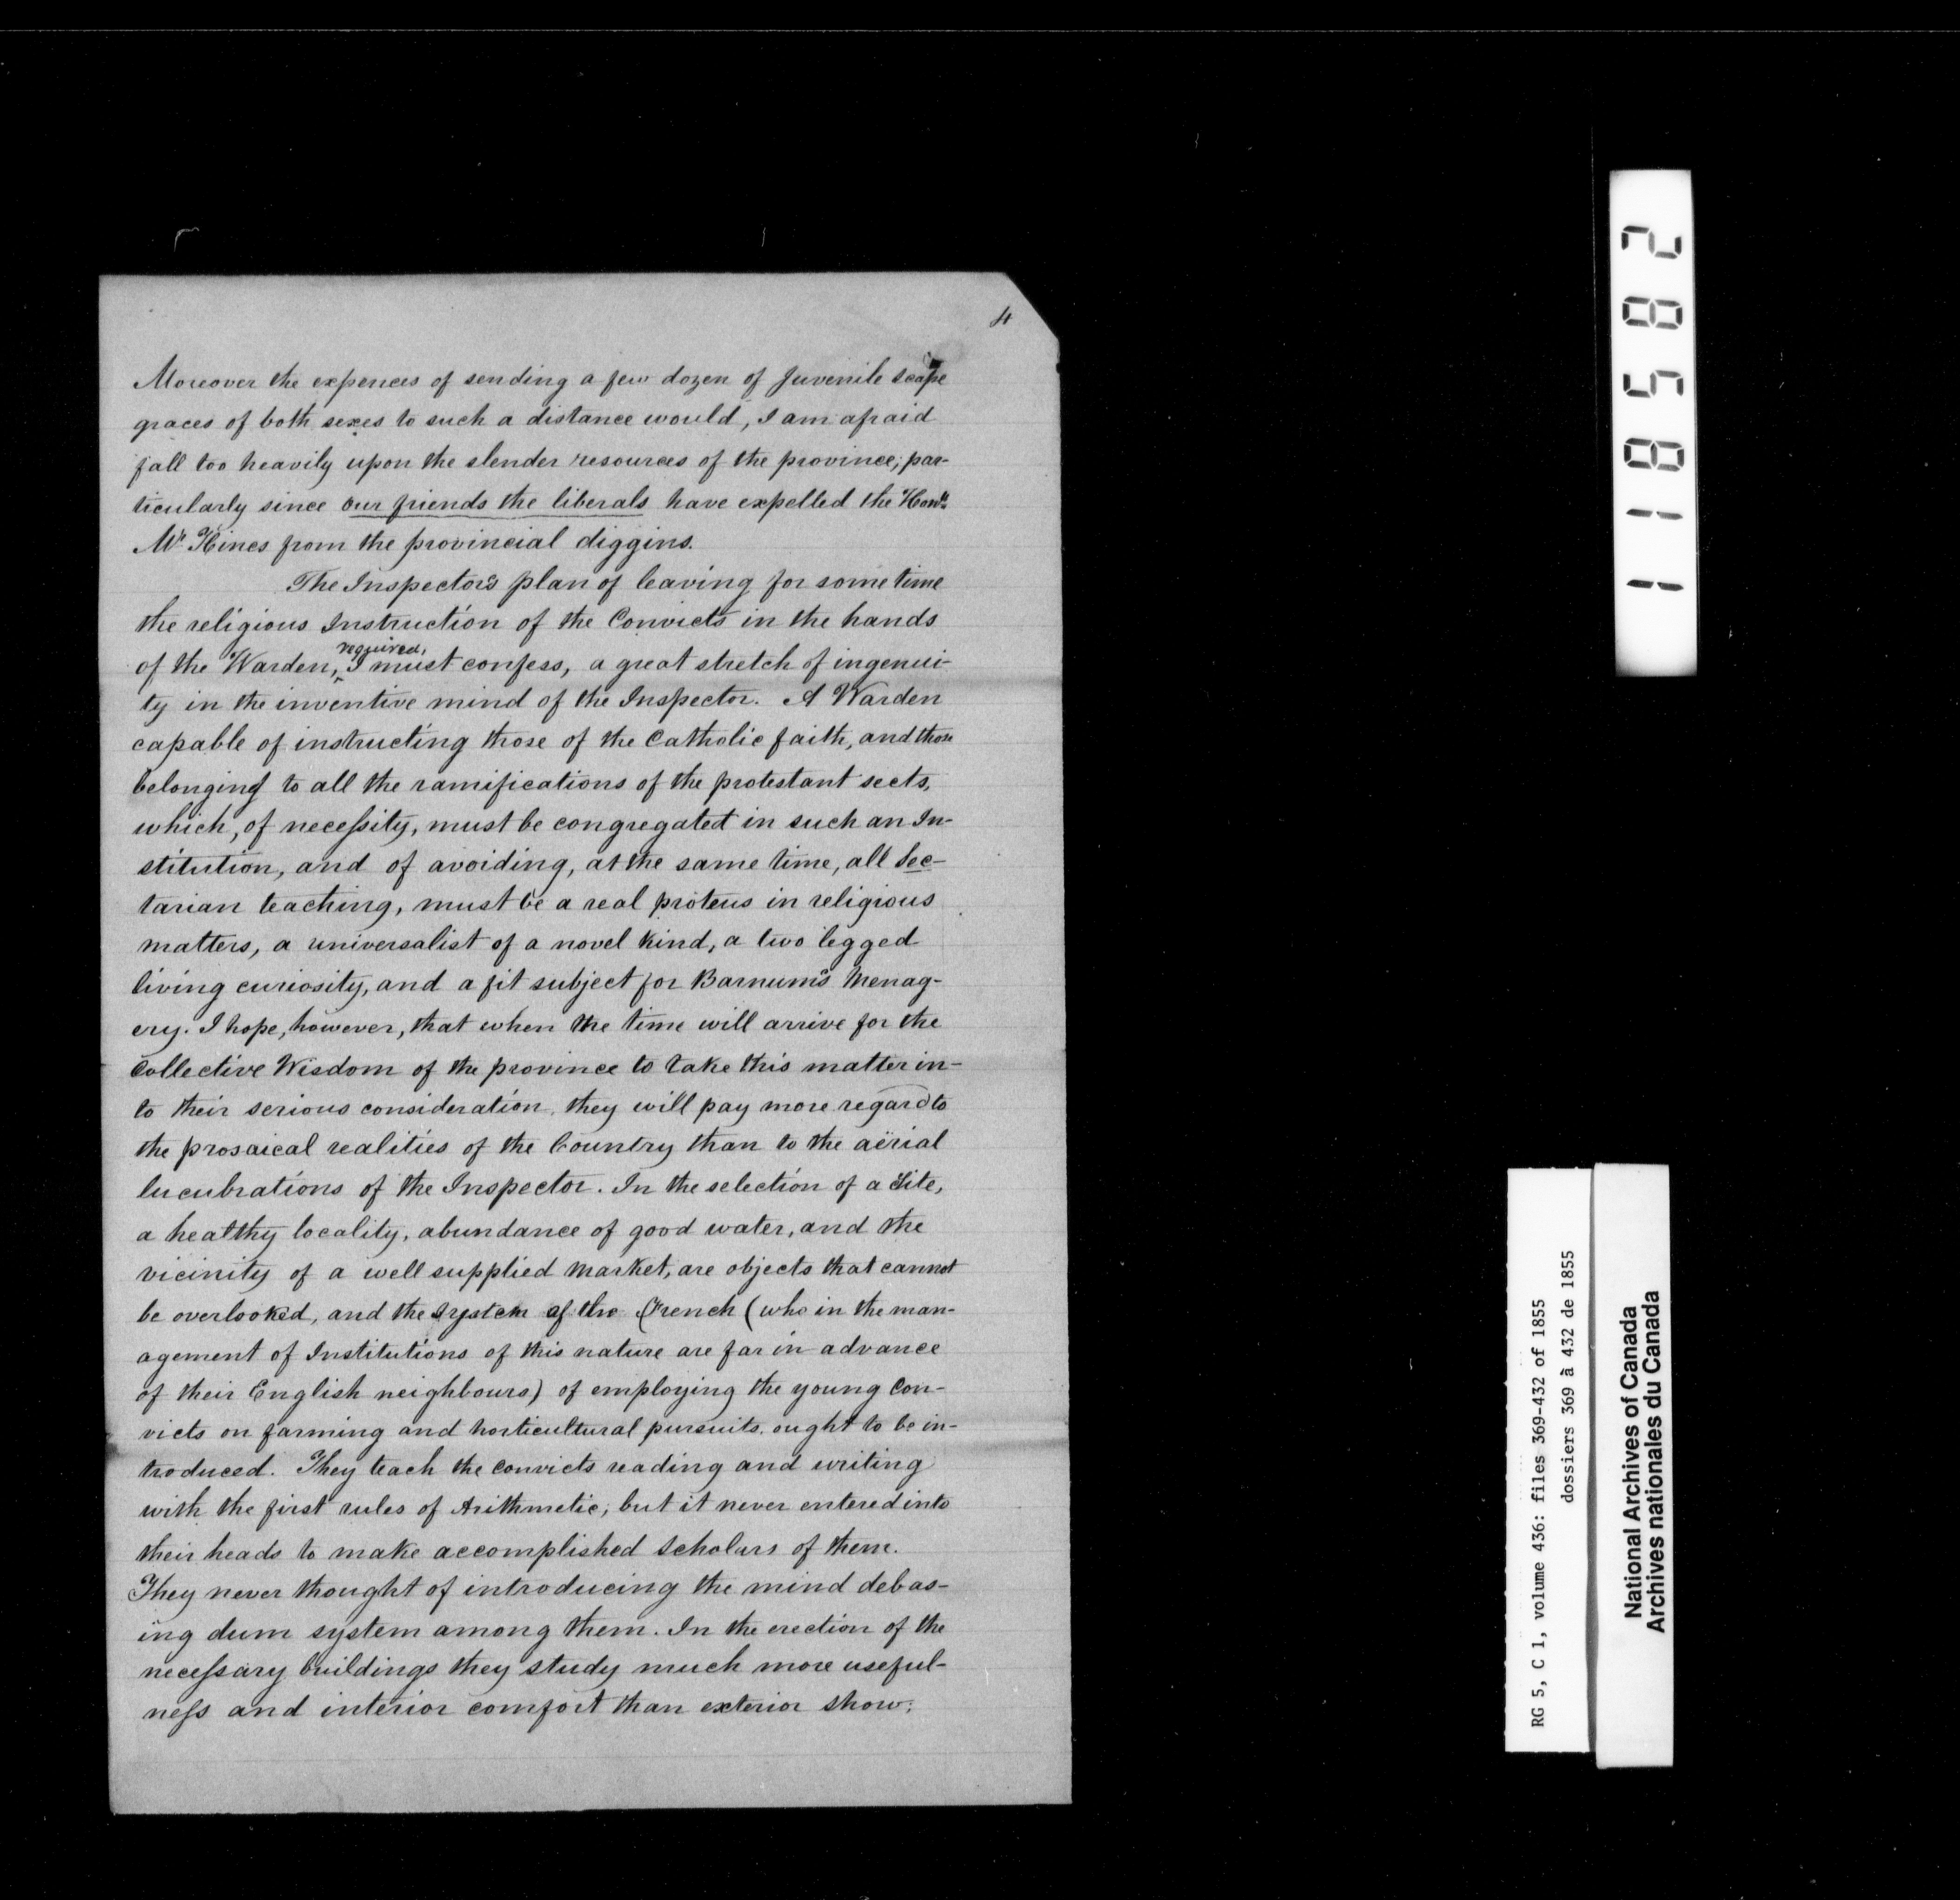 4
Moreover the expences of sending a few dozen of Juvenile scape
graces of both sexes to such a distance would, I am afraid
fall too heavily upon the slender resources of the province; par-
ticularly since our friends the liberals have expelled the Honble
Mr Hincs from the provincial diggins.
The Inspector's plan of leaving for some time
the religious Instruction of the Convicts in the hands
of the Warden, required, I must confess, a great stretch of ingenui-
ty in the inventive mind of the Inspector. A Warden
capable of instructing those of the Catholic faith, and those
belonging to all the ramifications of the protestant sects,
which, of necessity, must be congregated in such an In-
stitution, and of avoiding, at the same time, all Sec-
tarian teaching, must be a real proteus in religious
matters, a universalist of a novel kind, a two legged
living curiosity, and a fit subject for Barnum's Menag-
ery. I hope, however, that when the time will arrive for the
Collective Wisdom of the province to take this matter in-
to their serious consideration, they will pay more regard to
the prosaical realities of the Country than to the aërial
lucubrations of the Inspector. In the selection of a Site,
a healthy locality, abundance of good water, and the
vicinity of a well supplied market, are objects that cannot
be overlooked, and the system of the French (who in the man-
agement of Institutions of this nature are far in advance
of their English neighbours) of employing the young Con-
victs on farming and horticultural pursuits, ought to be in-
troduced. They teach the convicts reading and writing
with the first rules of Arithmetic; but it never entered into
their heads to make accomplished scholars of them.
They never thought of introducing the mind debas-
ing dum system among them. In the erection of the
necessary buildings they study much more useful-
ness and interior comfort than exterior show;
118582
RG 5, C 1, volume 436: files 369-432 of 1855
dossiers 369 à 432 de 1855
National Archives of Canada
Archives nationales du Canada